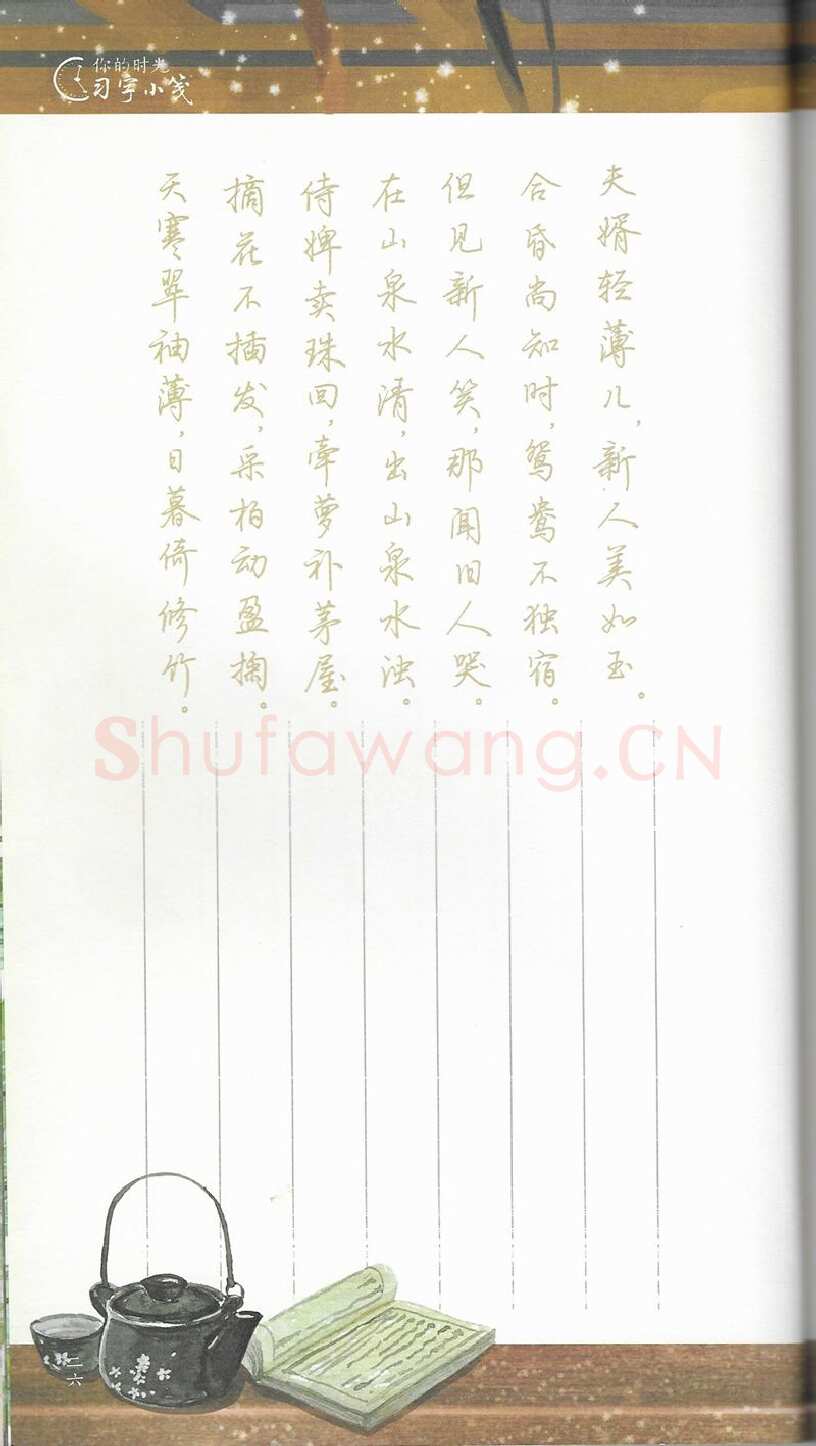 你的时光
习字小笺
夫婿轻薄儿，新人美如玉。
合昏尚知时，鸳鸯不独宿。
但见新人笑，那闻旧人哭。
在山泉水清，出山泉水浊。
侍婢卖珠回，牵萝补茅屋。
摘花不插发，采柏动盈掬。
天寒翠袖薄，日暮倚修竹。
Shufawang.CN
二六